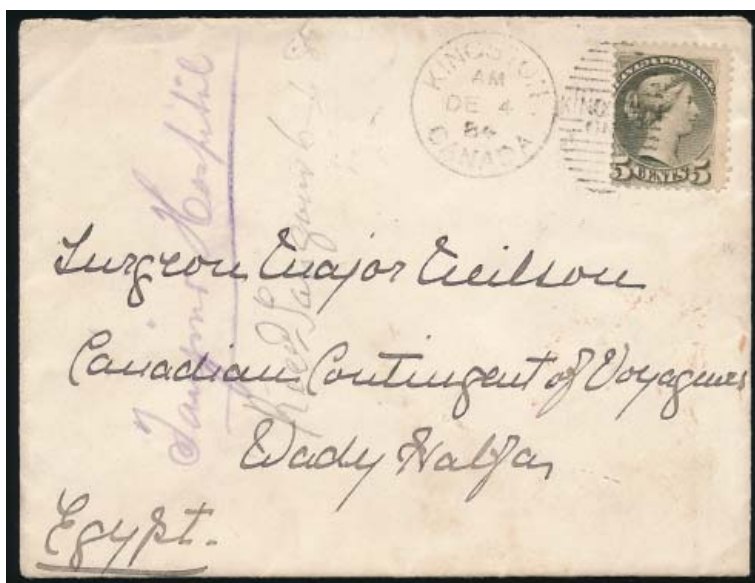 KINGSTON
AM
DE 4
84
CANADA
CANADA POSTAGE
5 CENTS 5
Surgeon Major Neilson
Canadian Contingent of Voyageurs
Wady Halfa
Egypt.
Hospital
Rec'd